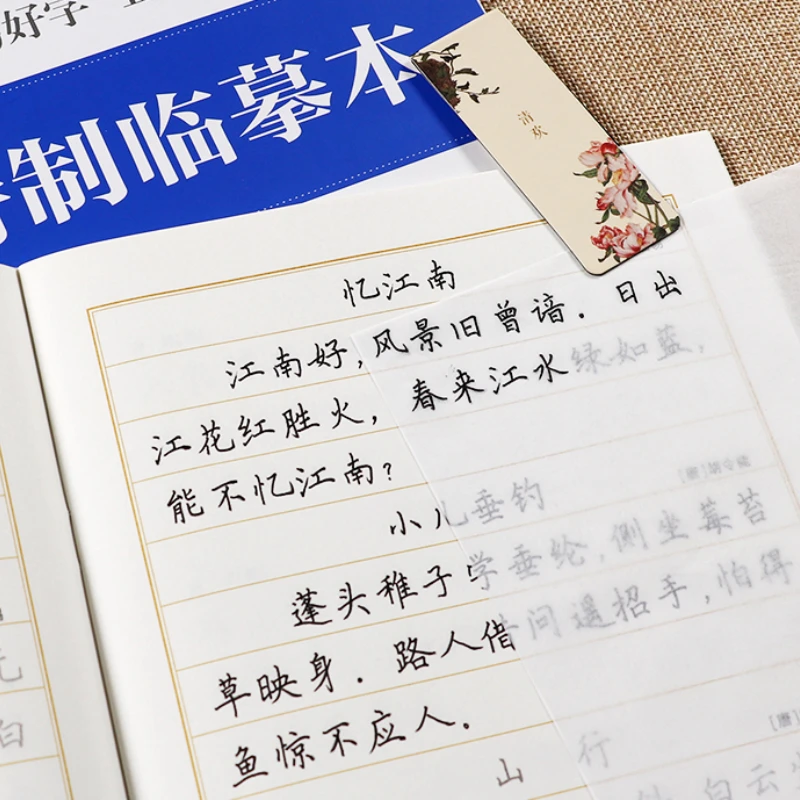 好字
制临摹本
清欢
忆江南
江南好,风景旧曾谙.日出
江花红胜火,春来江水绿如蓝,
能不忆江南?
[唐]胡令能
小儿垂钓
蓬头稚子学垂纶,侧坐莓苔
草映身.路人借问遥招手,怕得
鱼惊不应人.
[唐]
山行
白云
元
白